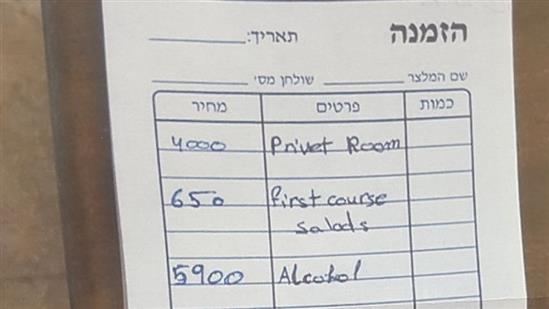 הזמנה תאריך:
שם המלצר שולחן מס'
כמות פרטים מחיר
Privet Room 4000
first course 650
salads
Alcohol 5900